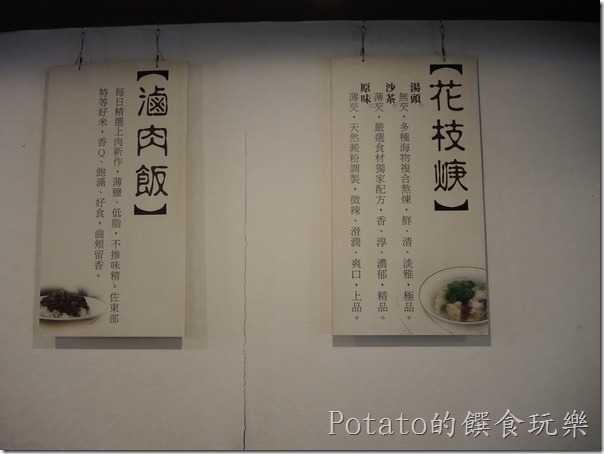 【花枝焿】
湯頭。
無芡，多種海物複合熬煉，鮮、清、淡雅，極品。
沙茶。
薄芡，嚴選食材獨家配方，香、淳、濃郁，精品。
原味。
薄芡，天然澱粉調製，微辣、滑潤、爽口，上品。
【滷肉飯】
每日精選上肉新作，薄鹽、低脂，不摻味精。佐東部
特等好米，香Q、飽滿、好食，齒頰留香。
Potato的饌食玩樂